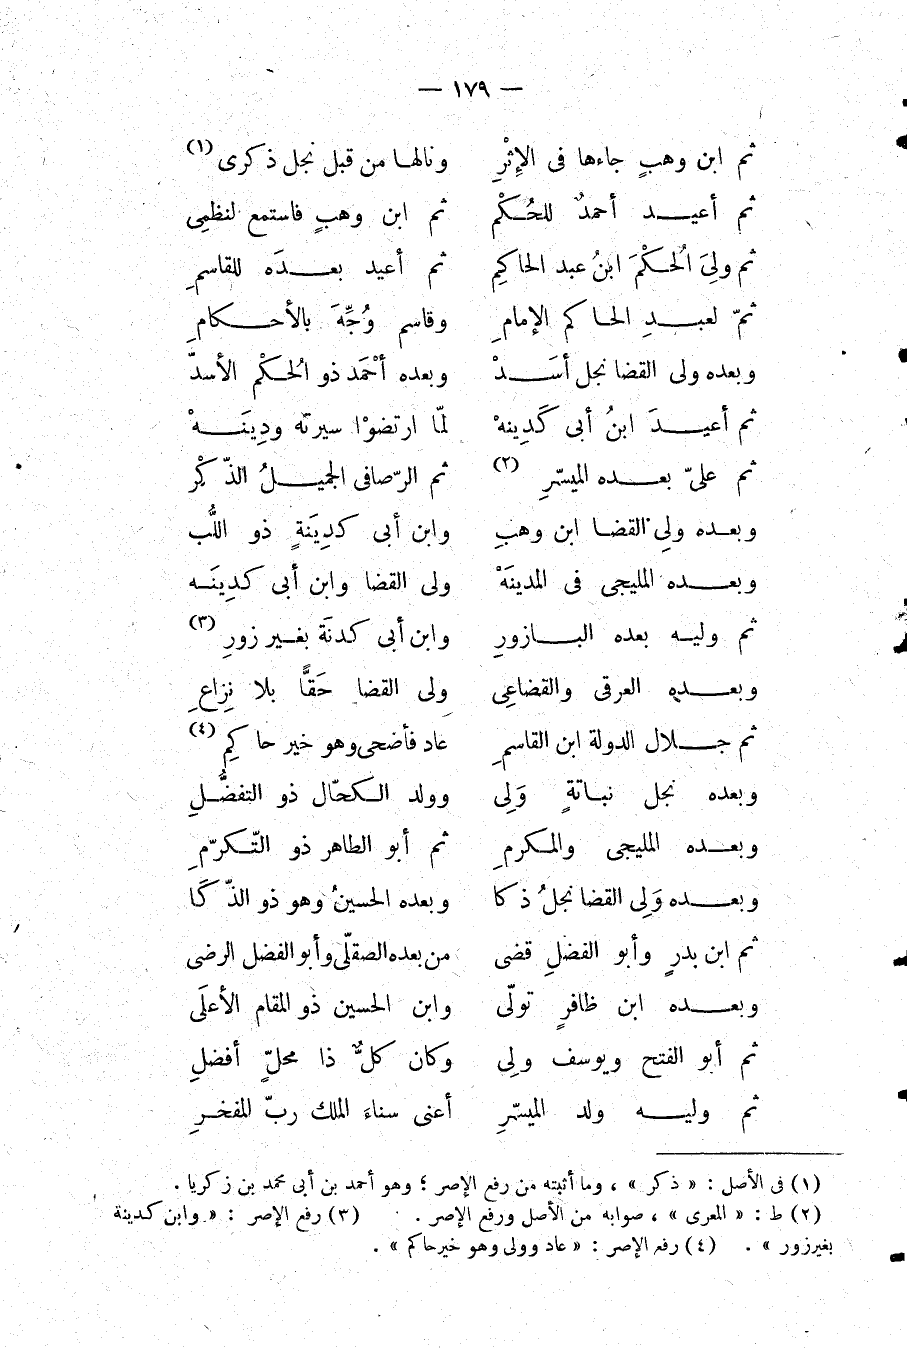 — ١٧٩ —
ثم ابن وهبٍ جاءها فى الإثْرِ ونالها من قبل نجل ذكرى (١)
ثم أعيد أحمدٌ للحُكْمِ ثم ابن وهبٍ فاستمع لنظمِى
ثم ولِىَ الْحُكْمَ ابنُ عبد الحاكمِ ثم أعيد بعدَه للقاسمِ
ثمّ لعبدِ الحاكم الإمامِ وقاسم وُجِّهَ بالأحكامِ
وبعده ولى القضا نجل أسَدْ وبعده أحْمَد ذو الْحُكْم الأسدّ
ثم أعيدَ ابنُ أبى كَدِينهْ لمّا ارتضوْا سيرته ودِينَهْ
ثم علىّ بعده الميسّرِ (٢) ثم الرّصافى الجميلُ الذّكْرِ
وبعده ولِى القضا ابن وهبِ وابن أبى كدِينَةٍ ذو اللُّب
وبعده المليجى فى المدينَهْ ولى القضا وابن أبى كدِينَه
ثم وليه بعده البازورِ وابن أبى كدنَة بغير زورِ (٣)
وبعده العرقى والقضاعِى ولى القضا حَقًّا بلا نِزاعِ
ثم جلال الدولة ابن القاسمِ عاد فأضحى وهو خير حاكِمِ (٤)
وبعده نجل نباتةٍ وَلِى وولد الكحّال ذو التفضُّلِ
وبعده المليجى والمكرمِ ثم أبو الطاهر ذو التّكرّمِ
وبعده وَلِى القضا نجلُ ذكا وبعده الحسينُ وهو ذو الذّكَا
ثم ابن بدرٍ وأبو الفضلِ قضى من بعده الصقلّى وأبو الفضل الرضى
وبعده ابن ظافرٍ تولّى وابن الحسين ذو المقام الأعلَى
ثم أبو الفتح ويوسف ولِى وكان كلٌّ ذا محلٍّ أفضلِ
ثم وليه ولد الميسّرِ أعنى سناءَ الملك ربّ المفخرِ
(١) فى الأصل : « ذكر » ، وما أثبته من رفع الإصر ؛ وهو أحمد بن أبى محمد بن زكريا .
(٢) ط : « المعرى » ، صوابه من الأصل ورفع الإصر . (٣) رفع الإصر : « وابن كدينة
بغير زور » . (٤) رفع الإصر : « عاد وولى وهو خير حاكم » .